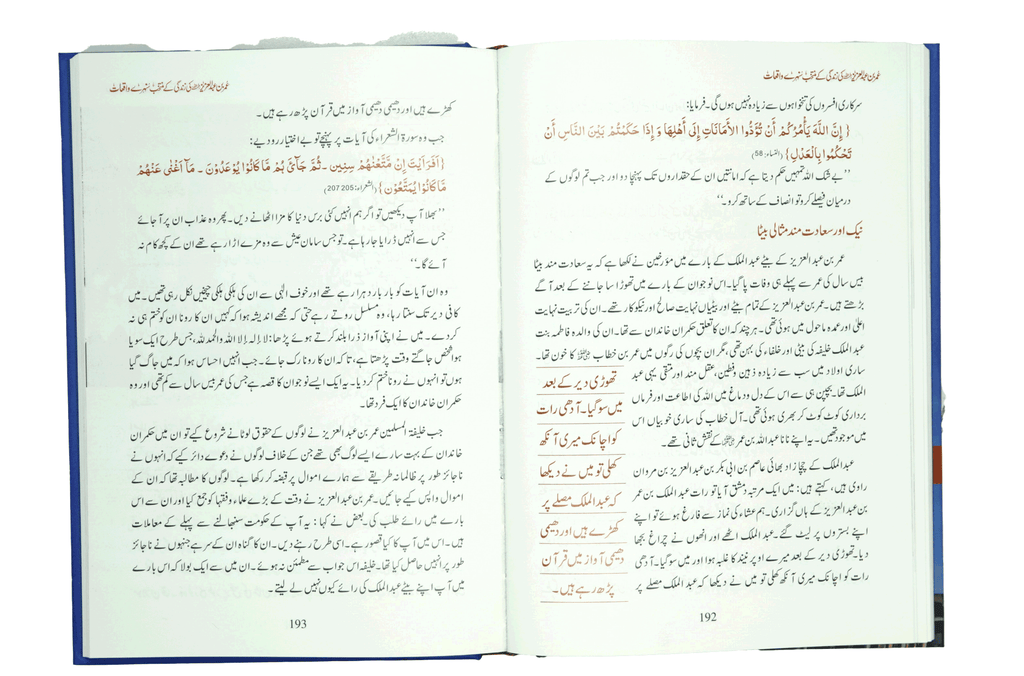 عمر بن عبدالعزیز رحمہ اللہ کی زندگی کے منتخب سنہرے واقعات
سرکاری افسروں کی تنخواہوں سے زیادہ نہیں ہوں گی۔ فرمایا:
{ إِنَّ اللَّهَ يَأْمُرُكُمْ أَنْ تُؤَدُّوا الْأَمَانَاتِ إِلَى أَهْلِهَا وَإِذَا حَكَمْتُمْ بَيْنَ النَّاسِ أَنْ
تَحْكُمُوا بِالْعَدْلِ } (النساء: 58)
’’بے شک اللہ تمہیں حکم دیتا ہے کہ امانتیں ان کے حقداروں تک پہنچا دو اور جب تم لوگوں کے
درمیان فیصلے کرو تو انصاف کے ساتھ کرو۔‘‘
نیک اور سعادت مند مثالی بیٹا
عمر بن عبدالعزیز کے بیٹے عبدالملک کے بارے میں مؤرخین نے لکھا ہے کہ یہ سعادت مند بیٹا
بیس سال کی عمر سے پہلے ہی وفات پا گیا۔ اس نوجوان کے بارے میں تھوڑا سا جاننے کے بعد آگے
بڑھتے ہیں۔ عمر بن عبدالعزیز کے تمام بیٹے اور بیٹیاں نہایت صالح اور نیکوکار تھے۔ ان کی تربیت نہایت
اعلیٰ اور عمدہ ماحول میں ہوئی تھی۔ ہر چند کہ ان کا تعلق حکمران خاندان سے تھا۔ ان کی والدہ فاطمہ بنت
عبدالملک خلیفہ کی بیٹی اور خلفاء کی بہن تھی، مگر ان بچوں کی رگوں میں عمر بن خطاب رضی اللہ عنہ کا خون تھا۔
ساری اولاد میں سب سے زیادہ ذہین و فطین، عقل مند اور متقی یہی عبد
الملک تھا۔ بچپن ہی سے اس کے دل و دماغ میں اللہ کی اطاعت اور فرماں
برداری کوٹ کوٹ کر بھری ہوئی تھی۔ آل خطاب کی ساری خوبیاں اس
میں موجود تھیں۔ یہ اپنے نانا عبداللہ بن عمر رضی اللہ عنہ کے نقش ثانی تھے۔
عبدالملک کے چچا زاد بھائی عاصم بن ابی بکر بن عبدالعزیز بن مروان
راوی ہیں، کہتے ہیں: میں ایک مرتبہ دمشق آیا تو رات عبدالملک بن عمر
بن عبدالعزیز کے ہاں گزاری۔ ہم عشاء کی نماز سے فارغ ہوئے تو اپنے
اپنے بستروں پر لیٹ گئے۔ عبدالملک اٹھے اور انھوں نے چراغ بجھا
دیا۔ تھوڑی دیر کے بعد میرے اوپر نیند کا غلبہ ہوا اور میں سو گیا۔ آدھی
رات کو اچانک میری آنکھ کھلی تو میں نے دیکھا کہ عبدالملک مصلے پر
تھوڑی دیر کے بعد
میں سو گیا۔ آدھی رات
کو اچانک میری آنکھ
کھلی تو میں نے دیکھا
کہ عبدالملک مصلے پر
کھڑے ہیں اور دھیمی
دھیمی آواز میں قرآن
پڑھ رہے ہیں۔
192
عمر بن عبدالعزیز رحمہ اللہ کی زندگی کے منتخب سنہرے واقعات
کھڑے ہیں اور دھیمی دھیمی آواز میں قرآن پڑھ رہے ہیں۔
جب وہ سورۃ الشعراء کی آیات پر پہنچے تو بے اختیار رو دیے:
{أَفَرَأَيْتَ إِن مَّتَّعْنَاهُمْ سِنِينَ ۔ ثُمَّ جَاءَهُم مَّا كَانُوا يُوعَدُونَ ۔ مَا أَغْنَى عَنْهُم
مَّا كَانُوا يُمَتَّعُونَ } (الشعراء: 205 207)
’’بھلا آپ دیکھیں تو اگر ہم انہیں کئی برس دنیا کا مزا اٹھانے دیں۔ پھر وہ عذاب ان پر آ جائے
جس سے انہیں ڈرایا جا رہا ہے۔ تو جس سامان عیش سے وہ مزے اڑا رہے تھے ان کے کچھ کام نہ
آئے گا۔‘‘
وہ ان آیات کو بار بار دہرا رہے تھے اور خوف الٰہی سے ان کی ہلکی ہلکی چیخیں نکل رہی تھیں۔ میں
کافی دیر تک سنتا رہا، وہ مسلسل روتے رہے حتی کہ مجھے اندیشہ ہوا کہ کہیں ان کا رونا ان کو ختم ہی نہ
کر دے۔ میں نے اپنی آواز ذرا بلند کرتے ہوئے پڑھا: لا إلہ إلا اللہ والحمدللہ، جس طرح ایک سویا
ہوا شخص جاگتے وقت پڑھتا ہے، تا کہ ان کا رونا رک جائے۔ جب انہیں احساس ہوا کہ میں جاگ گیا
ہوں تو انہوں نے رونا ختم کر دیا۔ یہ ایک ایسے نوجوان کا قصہ ہے جس کی عمر بیس سال سے کم تھی اور وہ
حکمران خاندان کا ایک فرد تھا۔
جب خلیفۃ المسلمین عمر بن عبدالعزیز نے لوگوں کے حقوق لوٹانے شروع کیے تو ان میں حکمران
خاندان کے بہت سارے ایسے لوگ بھی تھے جن کے خلاف لوگوں نے دعوے دائر کیے کہ انہوں نے
ناجائز طور پر ظالمانہ طریقے سے ہمارے اموال پر قبضہ کر رکھا ہے۔ لوگوں کا مطالبہ تھا کہ ان کے
اموال واپس کیے جائیں۔ عمر بن عبدالعزیز نے وقت کے بڑے علماء و فقہا کو جمع کیا اور ان سے اس
بارے میں رائے طلب کی۔ بعض نے کہا: یہ آپ کے حکومت سنبھالنے سے پہلے کے معاملات
ہیں۔ اس میں آپ کا کیا قصور ہے۔ اسی طرح رہنے دیں۔ ان کا گناہ ان کے سر ہے جنہوں نے ناجائز
طور پر انہیں حاصل کیا تھا۔ خلیفہ اس جواب سے مطمئن نہ ہوئے۔ ان میں سے ایک بولا کہ اس بارے
میں آپ اپنے بیٹے عبدالملک کی رائے کیوں نہیں لے لیتے۔
193